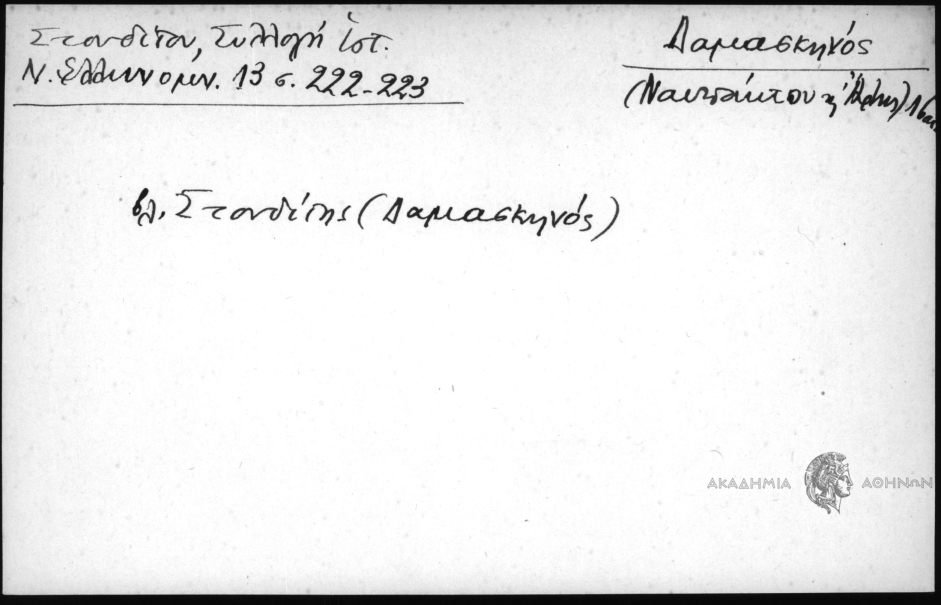 Στουδίτου, Συλλογή ἱστ.
Ν. Ἑλληνομν. 13 σ. 222-223
Δαμασκηνός
(Ναυπάκτου κ Ἄρτης) 16
βλ. Στουδίτης (Δαμασκηνός)
ΑΚΑΔΗΜΙΑ ΑΘΗΝΩΝ